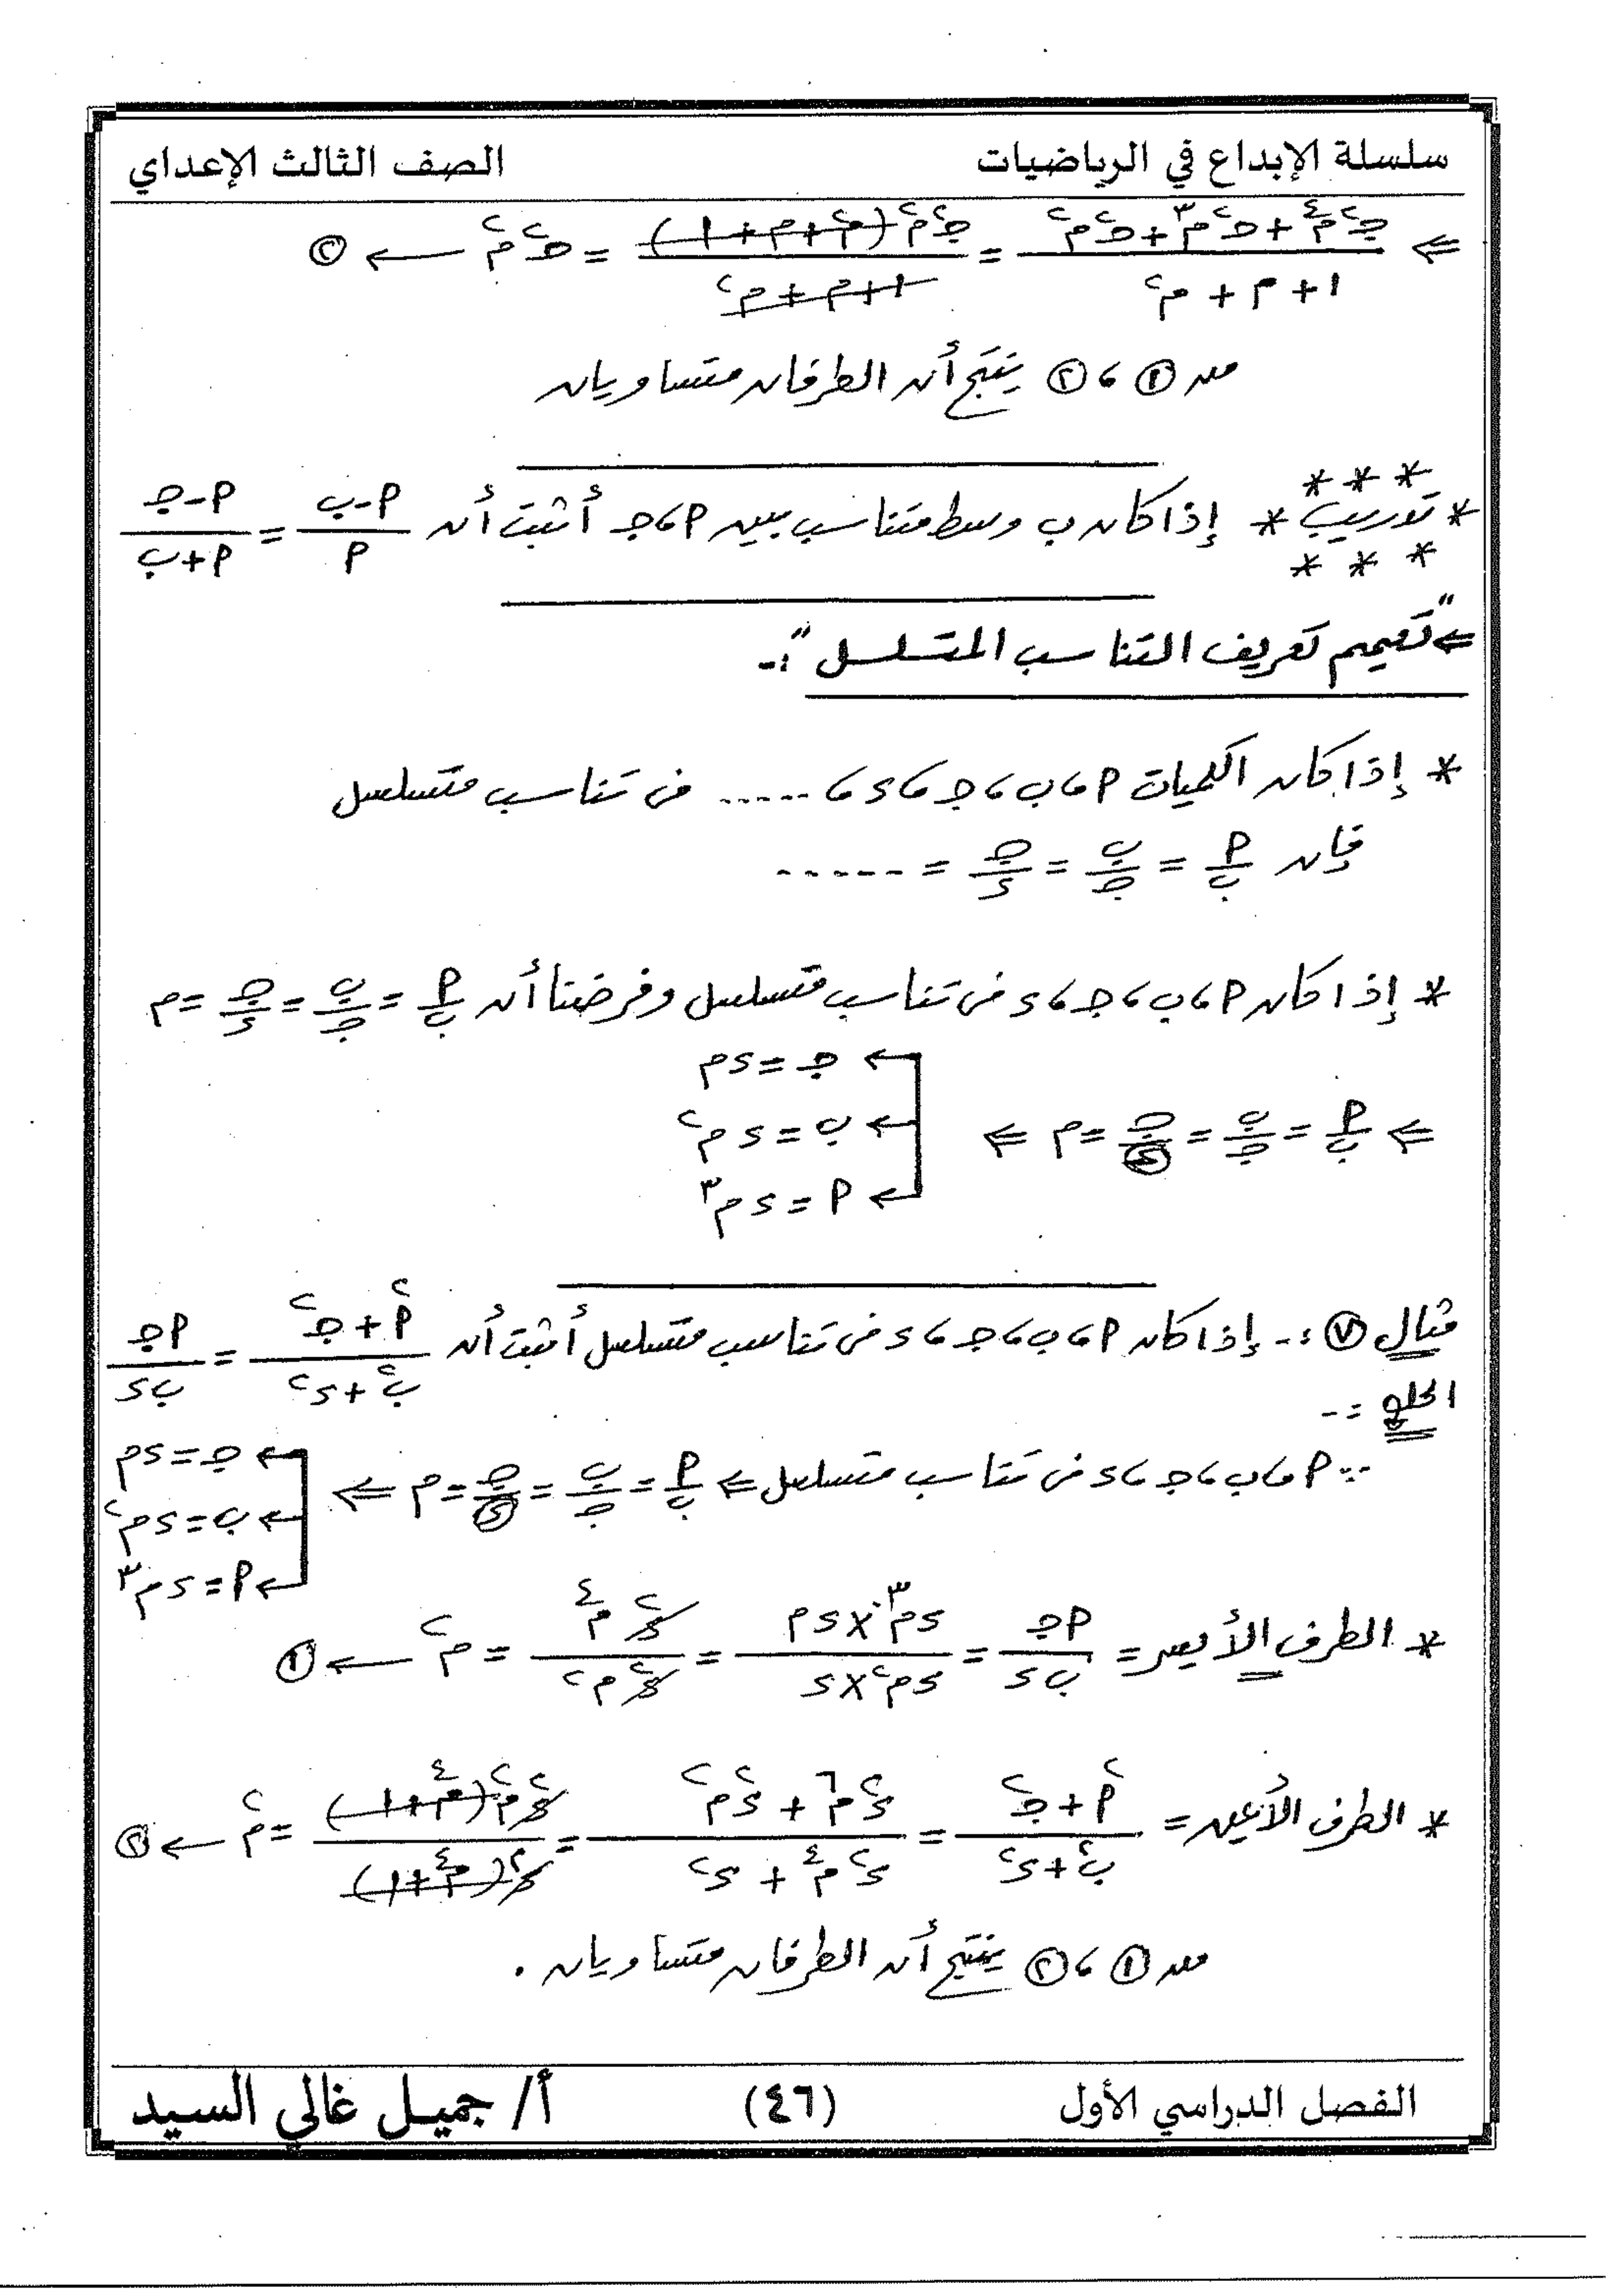 سلسلة الإبداع في الرياضيات الصف الثالث الإعداي
⇐ (جـ²م⁴ + جـ²م³ + جـ²م²) / (م² + م + ١) = جـ²م²(م² + م + ١) / (م² + م + ١) = جـ²م² ← ②
من ① ، ② ينتج أن الطرفان متساويان
* * *
* تدريب * إذا كان ب وسط متناسب بين أ ، جـ أثبت أن (أ - ب) / أ = (أ - جـ) / (أ + ب)
* * *
⇐ "تعميم تعريف التناسب المتسلسل" :-
* إذا كان الكميات أ ، ب ، جـ ، د ، ...... فى تناسب متسلسل
فإن أ/ب = ب/جـ = جـ/د = ......
* إذا كان أ ، ب ، جـ ، د فى تناسب متسلسل وفرضنا أن أ/ب = ب/جـ = جـ/د = م
⇐ أ/ب = ب/جـ = جـ/د = م ⇐
← جـ = د م
← ب = د م²
← أ = د م³
مثال ⑦ :- إذا كان أ ، ب ، جـ ، د فى تناسب متسلسل أثبت أن (أ² + جـ²) / (ب² + د²) = أ جـ / ب د
الحل :-
∵ أ ، ب ، جـ ، د فى تناسب متسلسل ⇐ أ/ب = ب/جـ = جـ/د = م ⇐
← جـ = د م
← ب = د م²
← أ = د م³
* الطرف الأيسر = أ جـ / ب د = (د م³ × د م) / (د م² × د) = د² م⁴ / د² م² = م² ← ①
* الطرف الأيمن = (أ² + جـ²) / (ب² + د²) = (د² م⁶ + د² م²) / (د² م⁴ + د²) = د² م²(م⁴ + ١) / د²(م⁴ + ١) = م² ← ②
من ① ، ② ينتج أن الطرفان متساويان .
الفصل الدراسي الأول (٤٦) أ/ جميل غالي السيد